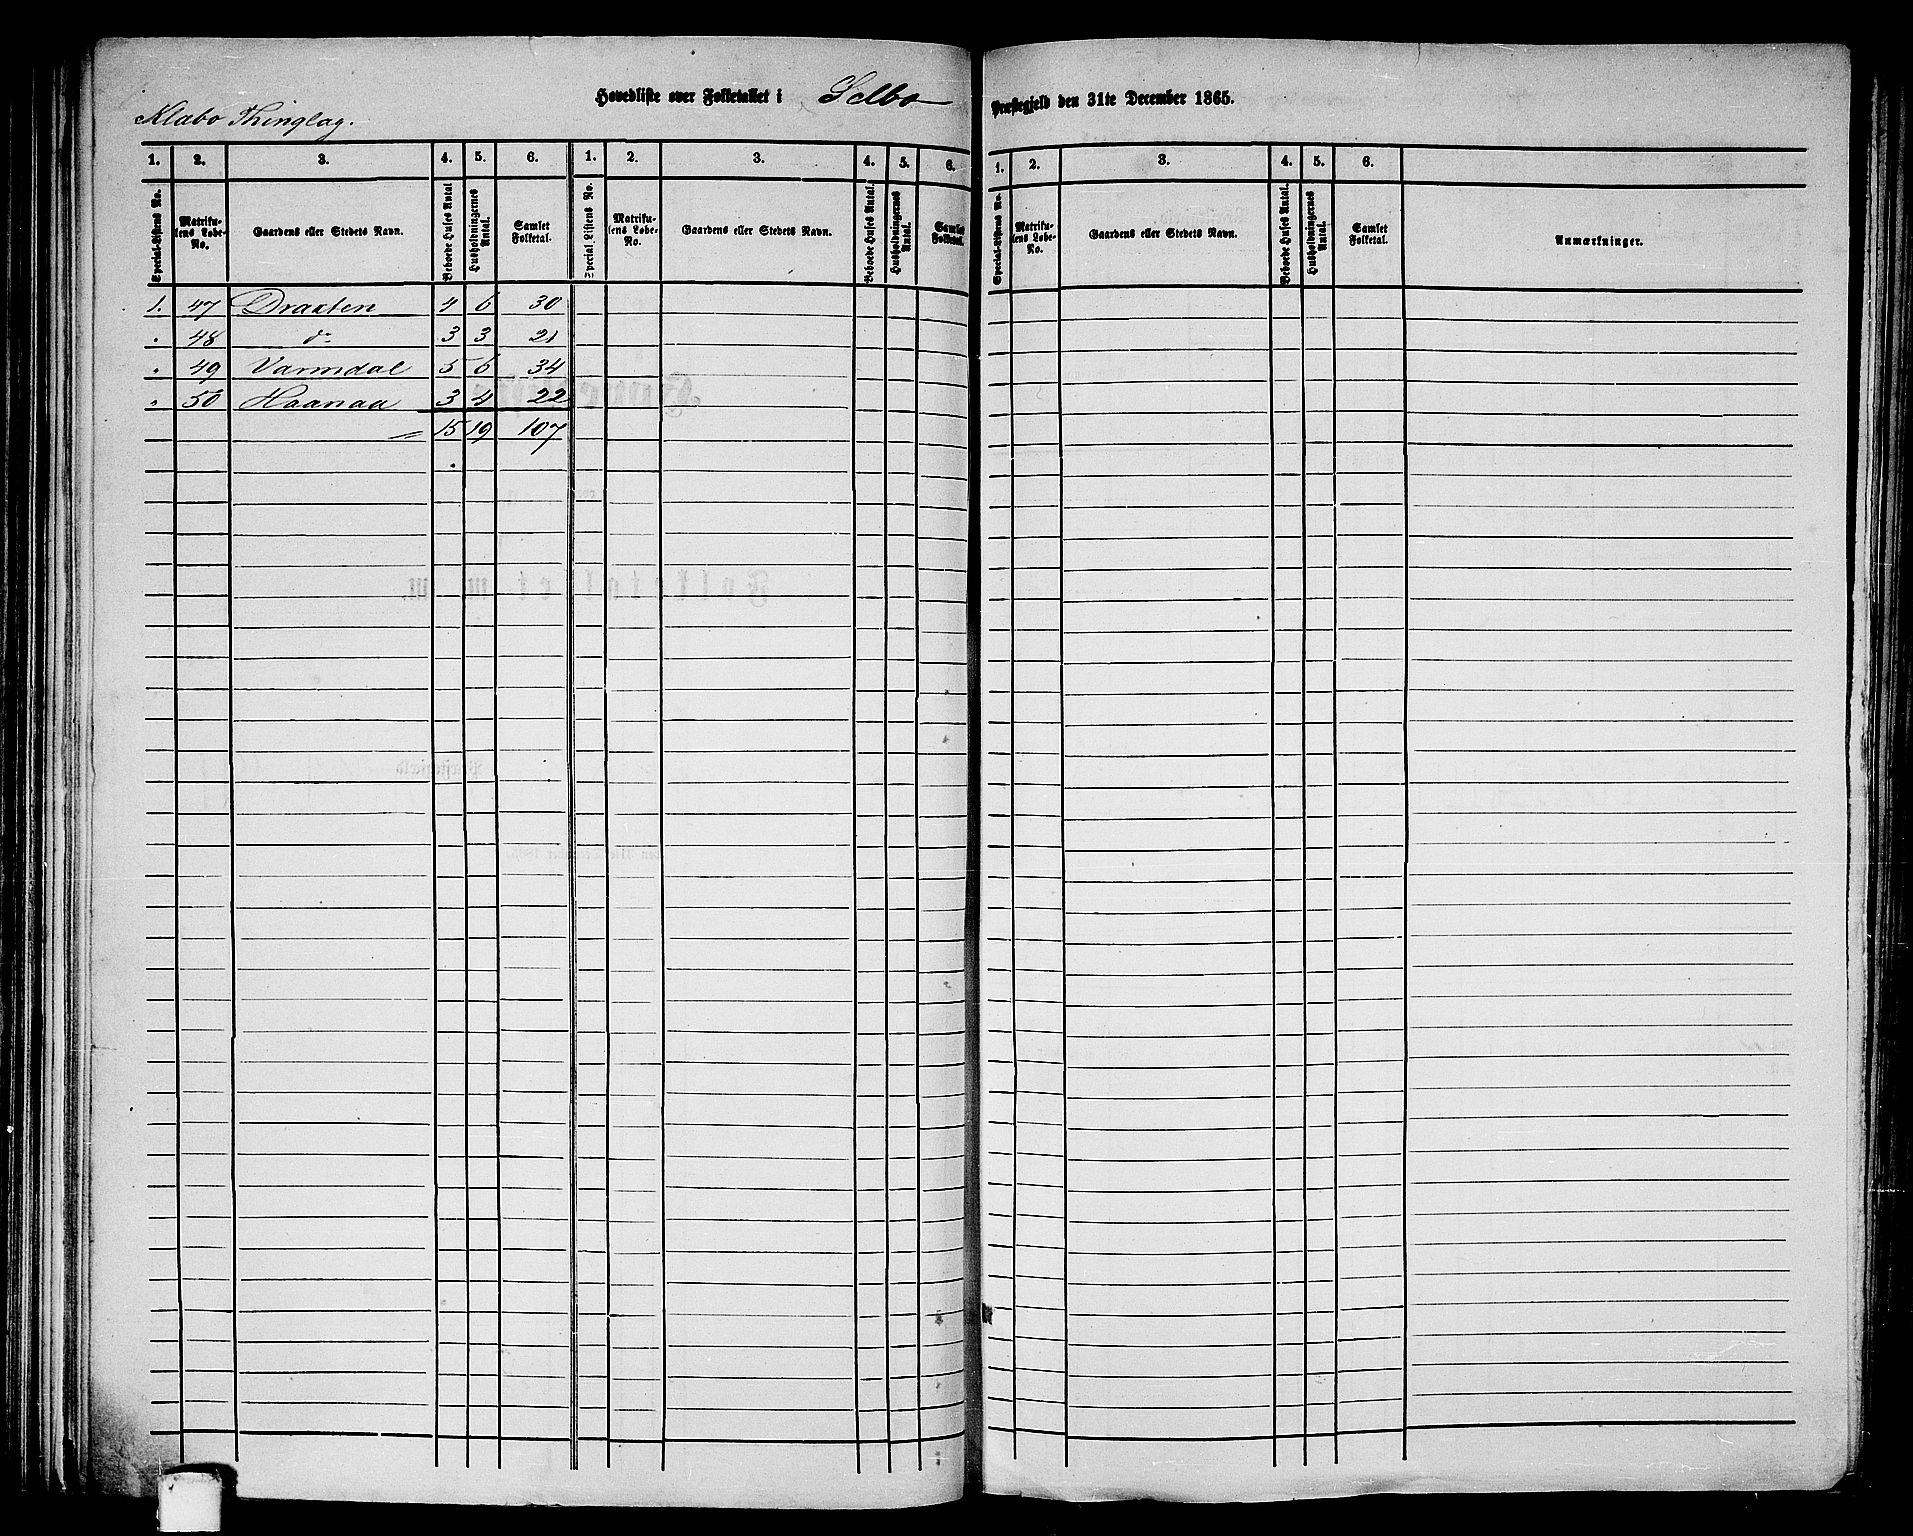 Hovedliste over Folketallet i Selbo Præstegjeld den 31te December 1865.
Klæbo Thinglag.
1. 2. 3. 4. 5. 6. 1. 2. 3. 4. 5. 6. 1. 2. 3. 4. 5. 6.
Special-Listens No. Matrikulens Løbe-No. Gaardens eller Stedets Navn. Beboede Huses Antal Husholdningernes Antal. Samlet Folketal. Special-Listens No. Matrikulens Løbe-No. Gaardens eller Stedets Navn. Beboede Huses Antal. Husholdningernes Antal. Samlet Folketal. Special-Listens No. Matrikulens Løbe-No. Gaardens eller Stedets Navn. Beboede Huses Antal. Husholdningernes Antal. Samlet Folketal. Anmærkninger.
1. 47 Draxten 4 6 30
" 48 do 3 3 21
" 49 Varmdal 5 6 34
" 50 Haanaa 3 4 22
15 19 107